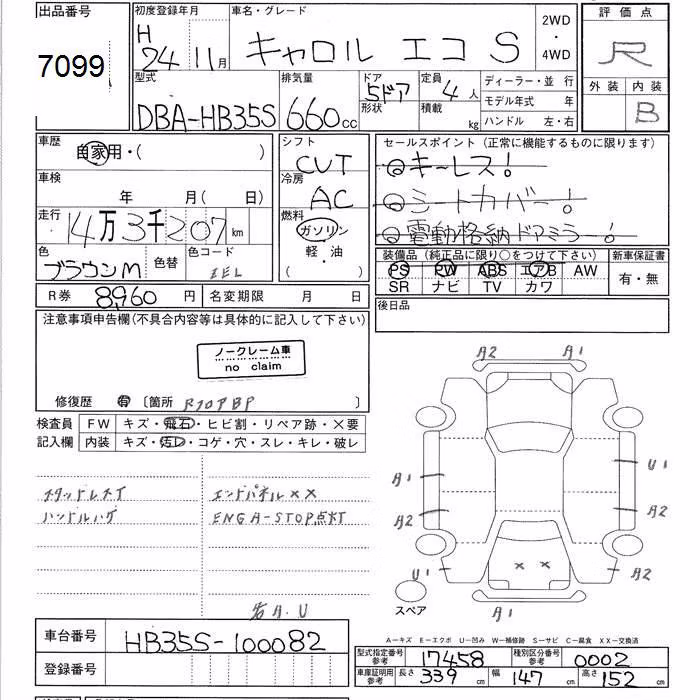 出品番号 初度登録年月 車名・グレード 2WD ・ 4WD 評価点
7099 H 24 11月 キャロル エコ S R
型式 排気量 ドア 定員 ディーラー・並行 外装 内装
DBA-HB35S 660cc 5ドア 4人 モデル年式 年 B
形状 積載 kg ハンドル 左・右
車歴 自家用・( ) シフト CVT セールスポイント (正常に機能するものに限ります)
◎キーレス!
車検 年 月( 日) 冷房 AC ◎シートカバー!
走行 14万3千207km 燃料 ガソリン ◎電動格納ドアミラー!
色 ブラウンM 色替 色コード ZEL 軽・油 ( )
装備品 (純正品に限り○をつけて下さい) 新車保証書
PS PW ABS エアB AW 有・無
SR ナビ TV カワ
R券 8960円 名変期限 月 日 後日品
注意事項申告欄(不具合内容等は具体的に記入して下さい)
ノークレーム車
no claim
修復歴 有 〔箇所 RフロアBP 〕
検査員 FW キズ・飛石・ヒビ割・リペア跡・×要
記入欄 内装 キズ・汚レ・コゲ・穴・スレ・キレ・破レ
A2 A1
A1 U1
A2 A2
U1 A2
× ×
A1
スタッドレスT エンドパネル××
ハンドルハゲ ENG A-STOP点灯
スペア
A.U
A－キズ E－エクボ U－凹み W－補修跡 S－サビ C－腐食 XX－交換済
車台番号 HB35S-100082
型式指定番号 参考 17458 種別区分番号 参考 0002
登録番号
車庫証明用 参考 長さ 339cm 幅 147cm 高さ 152cm